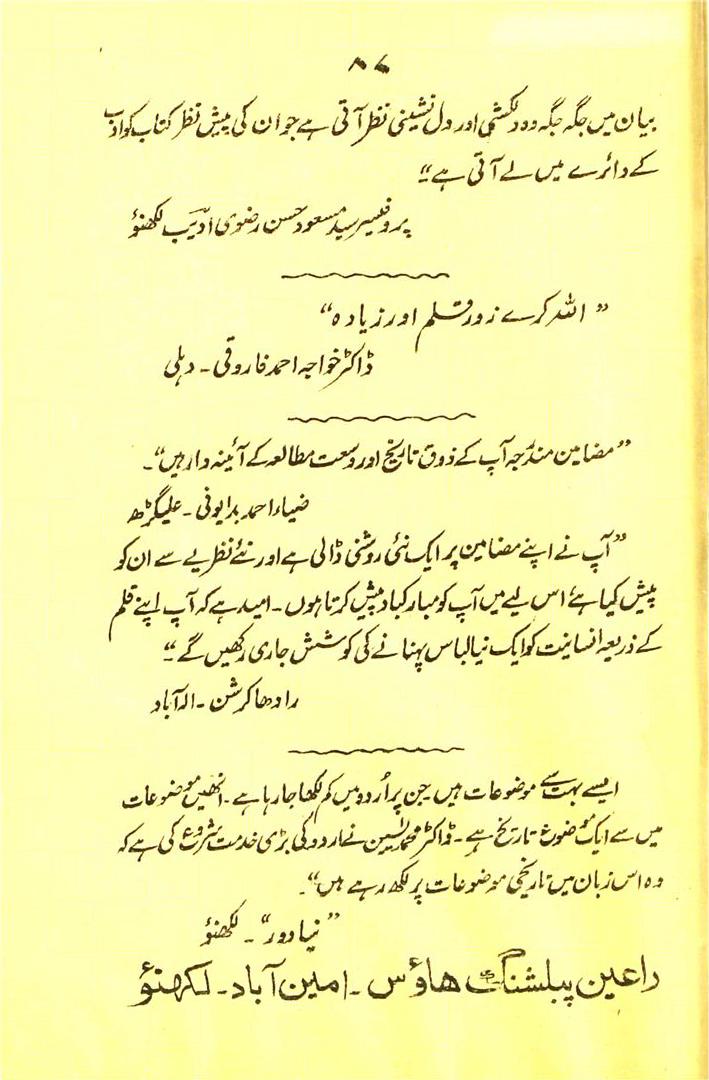 ۸۷
بیان میں جگہ جگہ وہ دلکشی اور دل نشینی نظر آتی ہے جو ان کی پیش نظر کتاب کو ادب
کے دائرے میں لے آتی ہے“
پروفیسر سید مسعود حسن رضوی ادیب لکھنؤ
”اللہ کرے زور قلم اور زیادہ“
ڈاکٹر خواجہ احمد فاروقی۔ دہلی
”مضامین مندرجہ آپ کے ذوق تاریخ اور وسعت مطالعہ کے آئینہ دار ہیں“۔
ضیاء احمد بدایونی۔ علیگڑھ
”آپ نے اپنے مضامین پر ایک نئی روشنی ڈالی ہے اور نئے نظریے سے ان کو
پیش کیا ہے اس لیے میں آپ کو مبارکباد پیش کرتا ہوں۔ امید ہے کہ آپ اپنے قلم
کے ذریعہ انسانیت کو ایک نیا لباس پہنانے کی کوشش جاری رکھیں گے“
رادھا کرشن۔ الہ آباد
ایسے بہت سے موضوعات ہیں جن پر اُردو میں کم لکھا جا رہا ہے۔ انھیں موضوعات
میں سے ایک موضوع تاریخ ہے۔ ڈاکٹر محمد یٰسین نے اردو کی بڑی خدمت شروع کی ہے کہ
وہ اس زبان میں تاریخی موضوعات پر لکھ رہے ہیں“۔
”نیا دور“۔ لکھنؤ
راعین پبلشنگ ھاؤس۔ امین آباد۔ لکھنؤ